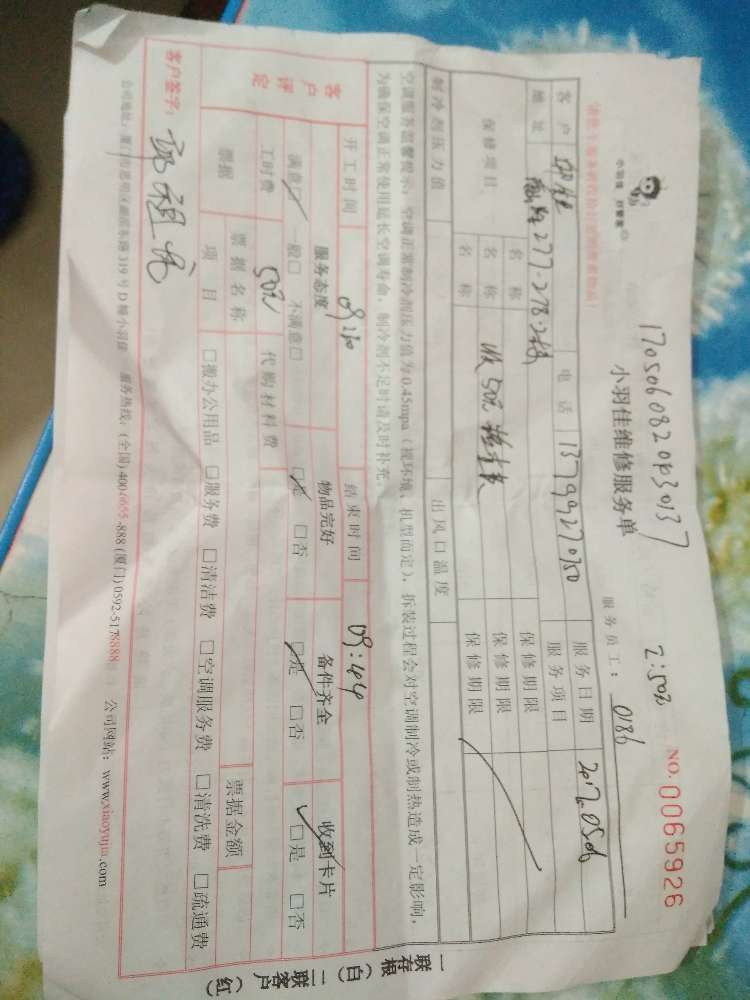 小羽佳 好管家
1705060820930137
2:50元
NO.0065926
小羽佳维修服务单
服务员工: 0186
客户
电话 13799270750
服务日期 2017.0506
地址 277-278:2楼
服务项目
保修项目
名称
保修期限
名称
收50元
保修期限
名称
保修期限
制冷剂压力值
出风口温度
空调服务温馨提示: 空调正常制冷剂压力值为0.45mpa(视环境、机型而定), 拆装过程会对空调制冷或制热造成一定影响,
为确保空调正常使用延长空调寿命, 制冷剂不足时请及时补充。
开工时间
结束时间 09:44
客户评定
服务态度
物品完好
备件齐全
收到卡片
满意☑ 一般□ 不满意□
☑是 □否
☑是 □否
☑是 □否
工时费 50元
代购材料费
票据
票据名称
票据金额
项目
□搬办公用品 □服务费 □清洁费 □空调服务费 □清洗费 □疏通费
客户签字:
319号D幢小羽佳 服务热线: (全国)4004655-888 (厦门)0592-5178888 公司网站: www.xiaoyujia.com
一联存根(白) 二联客户(红)